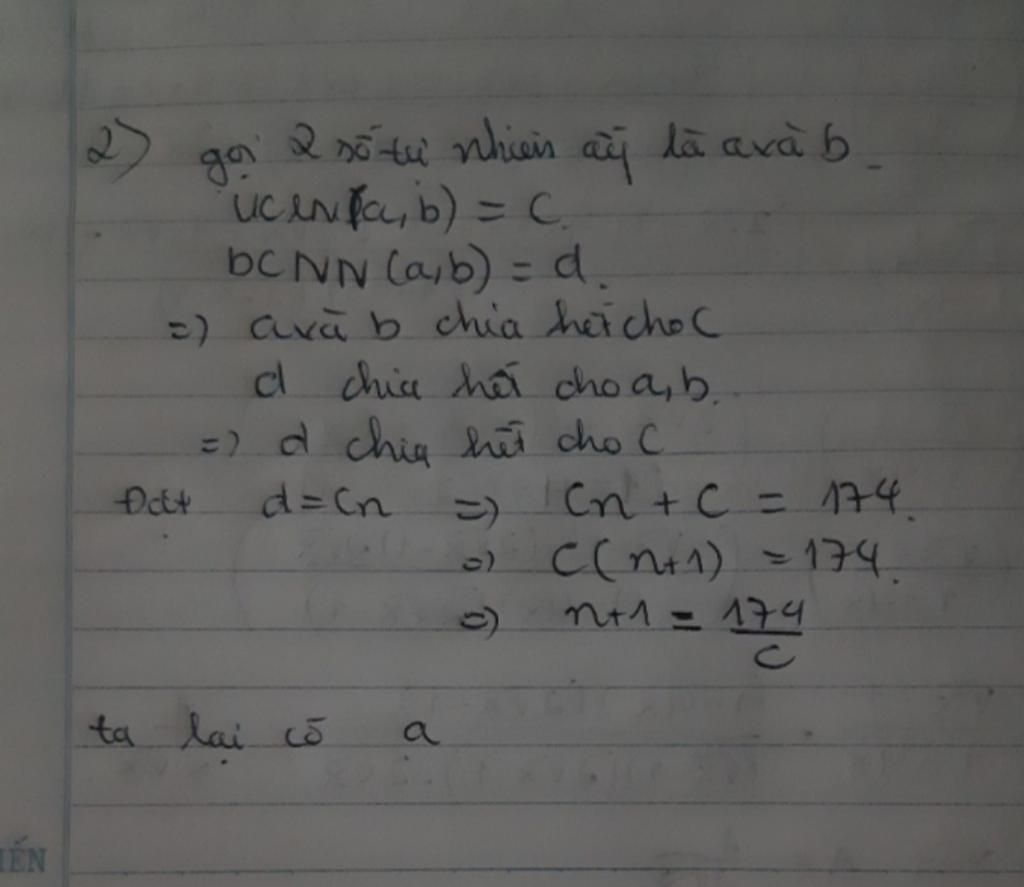 2) gọi 2 số tự nhiên ấy là a và b.
ƯCLN(a,b) = C.
bCNN(a,b) = d.
=) a và b chia hết cho C
d chia hết cho a,b.
=) d chia hết cho C
Đặt d = Cn =) Cn + C = 174.
=) C(n+1) = 174.
=) n+1 = 174/C
ta lại có a
IẾN